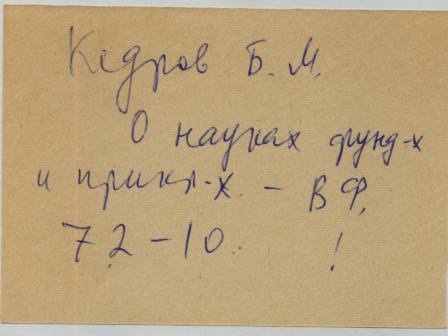 Кедров Б. М.
О науках фунд-х
и прикл-х. – ВФ,
72-10. !